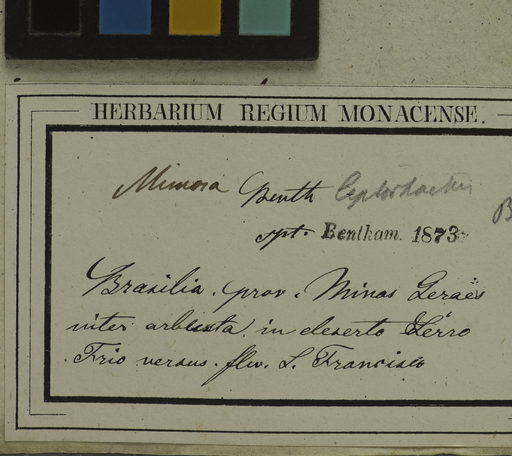 HERBARIUM REGIUM MONACENSE.
Mimosa Benth
spt. Bentham. 1873
Brasilia. prov. Minas Geraës
inter arbusta in deserto Serro
Frio versus flw. S. Francisco